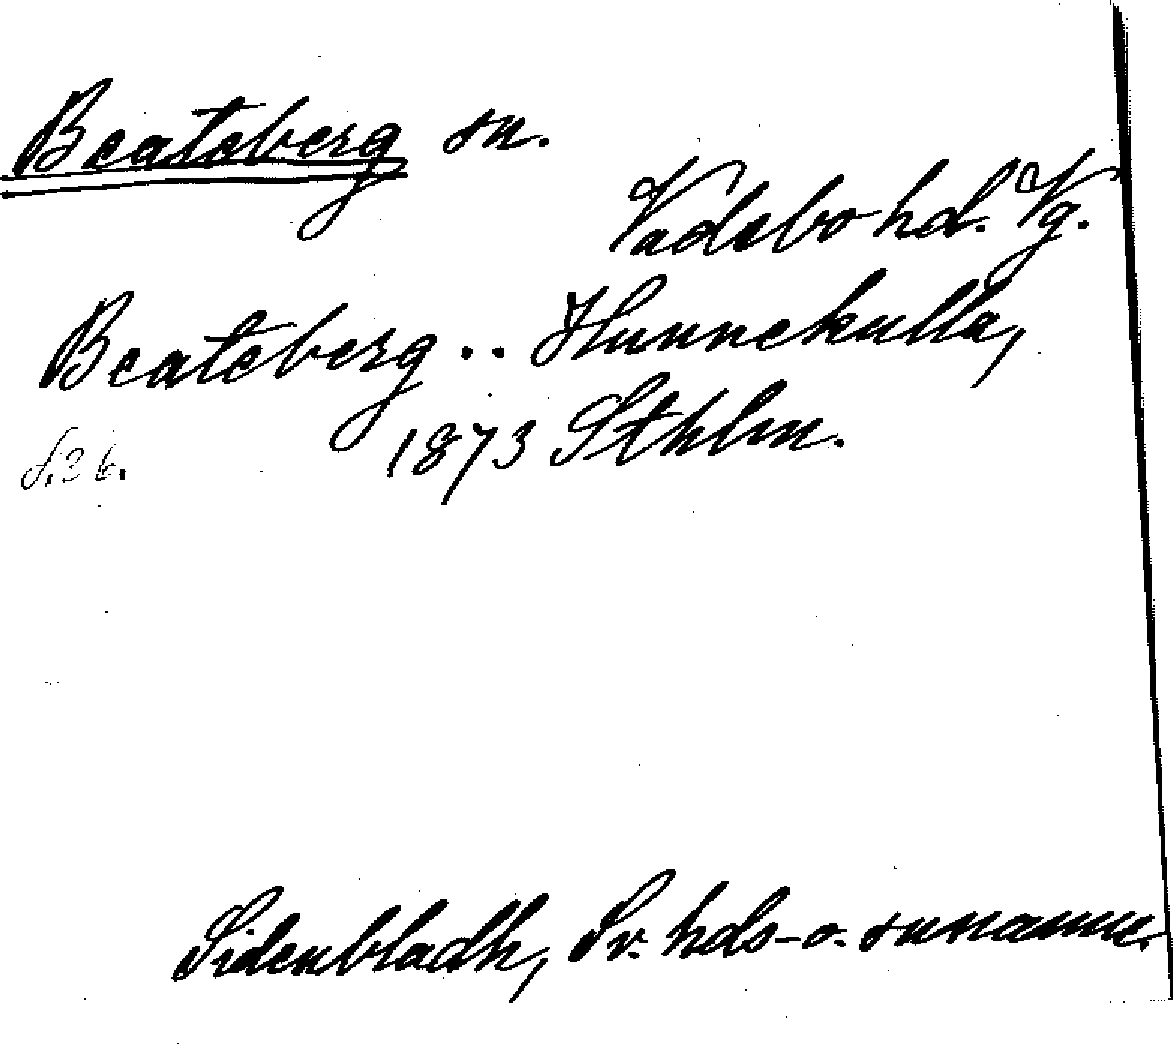 Beateberg sn.
Vadsbo hd. Vg.
Beateberg .. Hunnekulla,
1873 Sthlm.
S. 26.
Sidenbladh, Sv. hds- o. snnamn.